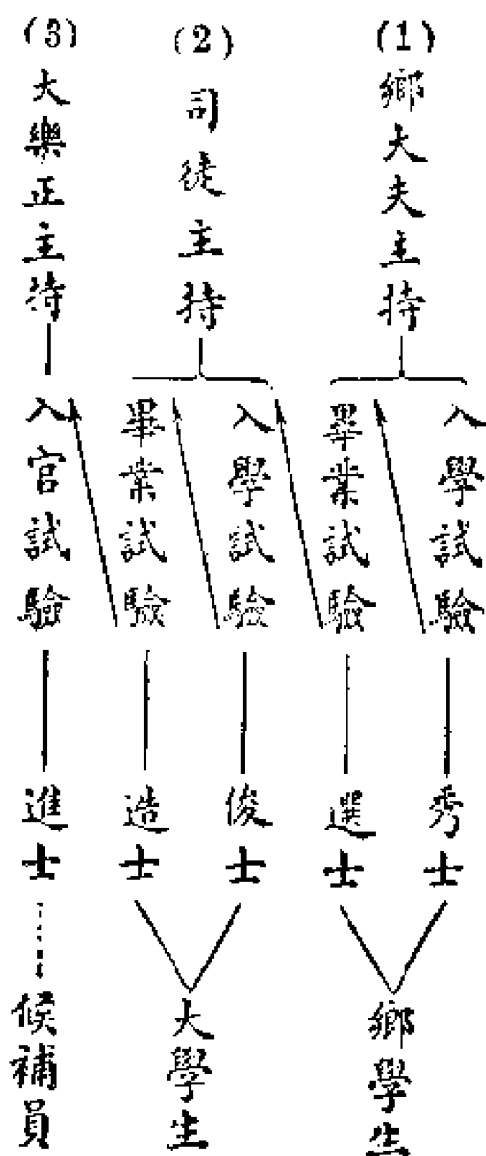 (1)
鄉大夫主持
入學試驗
畢業試驗
秀士
選士
鄉學生
(2)
司徒主持
入學試驗
畢業試驗
俊士
造士
大學生
(3)
大樂正主持
入官試驗
進士
候補員